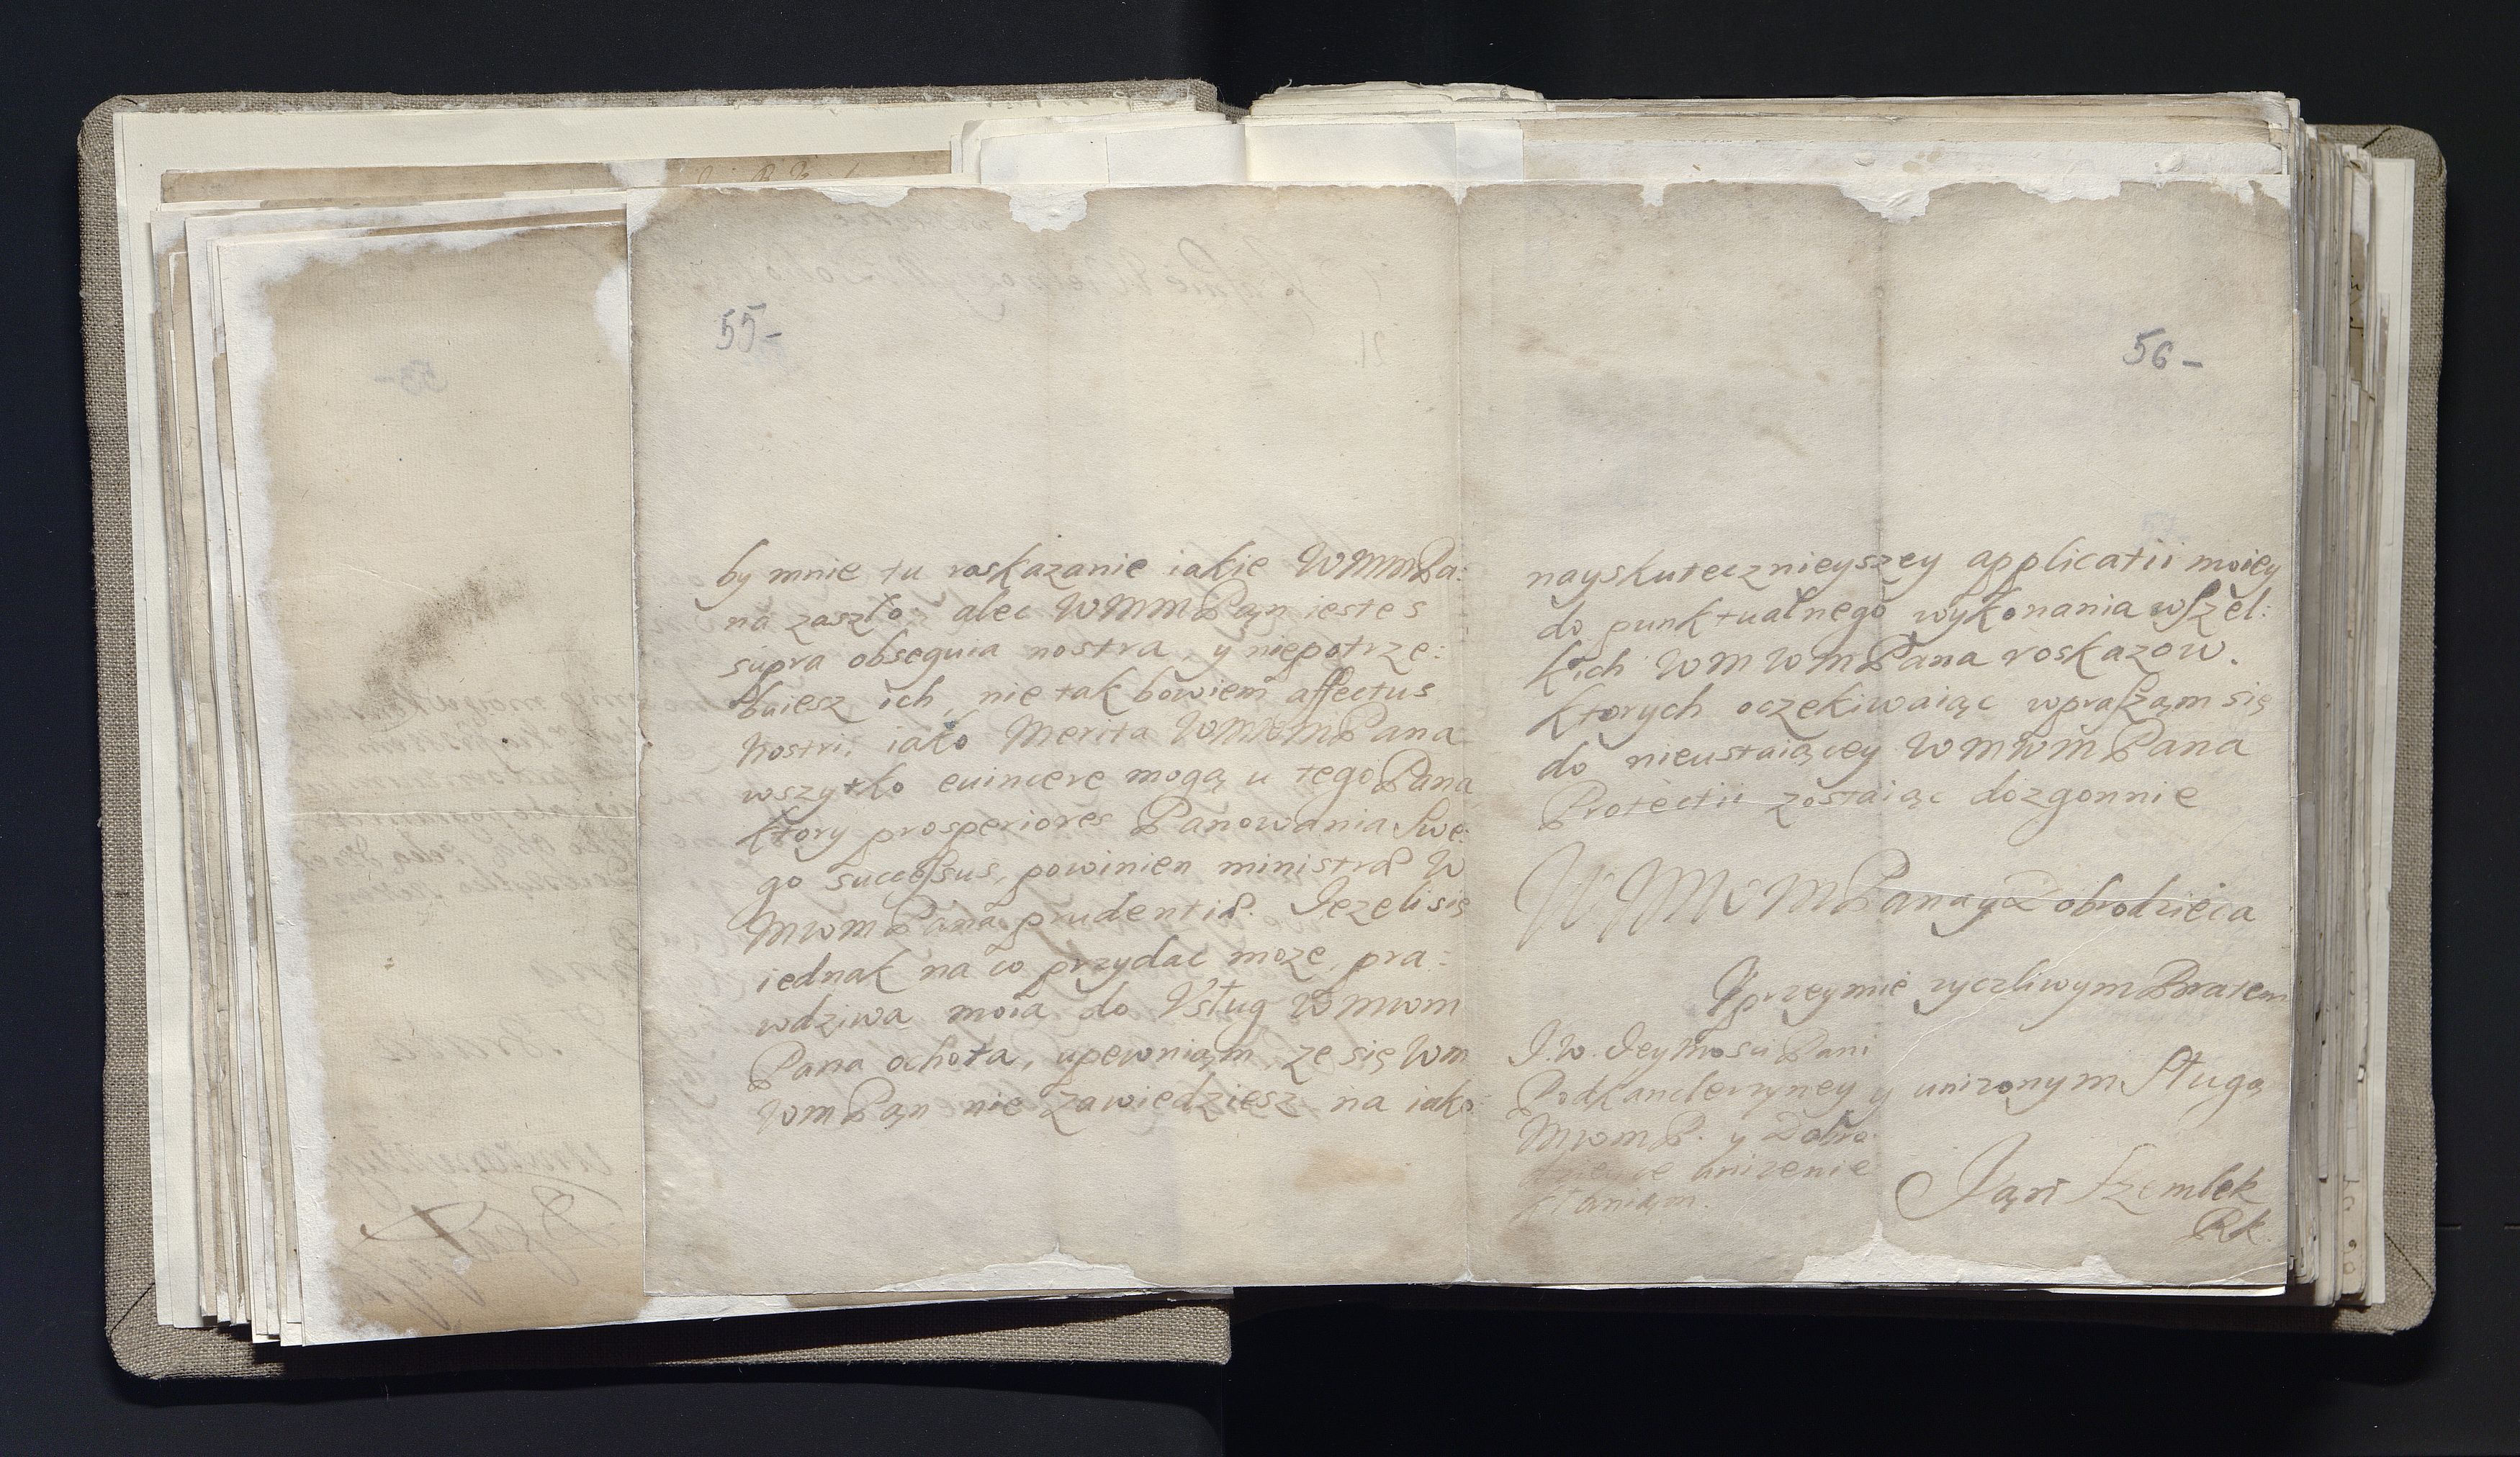 55-
by mnie tu roskazanie iakie WMMPa:
na zaszło; alec WMMPąn iestes
supra obsequia nostra, y niepotrze:
buiesz ich, nie tak bowiem affectus
nostri, iako Merita WMWMPana
wszytko euincere mogą u tego Pana
ktory prosperiores Panowania Swe:
go successus, powinien ministræ W
MWMPana prudentiæ. Jezeli się
iednak na co przydac moze, pra:
wdziwa moia do Vsług WMWM
Pana ochota, upewniąm, ze się WM
WMPąn nie zawiedziesz na iako
56-
nayskutecznieyszey applicatii moiey
do punktualnego wykonania wszel:
kich WMWMPana roskazow.
ktorych oczekiwaiąc wprasząm się
do nieustaiącey WMWMPana
Protectii zostaiąc dozgonnie
WMMWMPana y Dobrodzieia
Uprzeymie zyczliwym Bratem
y unizonym Sługą
J.W. Jeymosci Pani
Podkanclerzyney
MWMP. y Dobro:
dzieyce unizenie
kłaniąm.
Ján Szembek
RK.